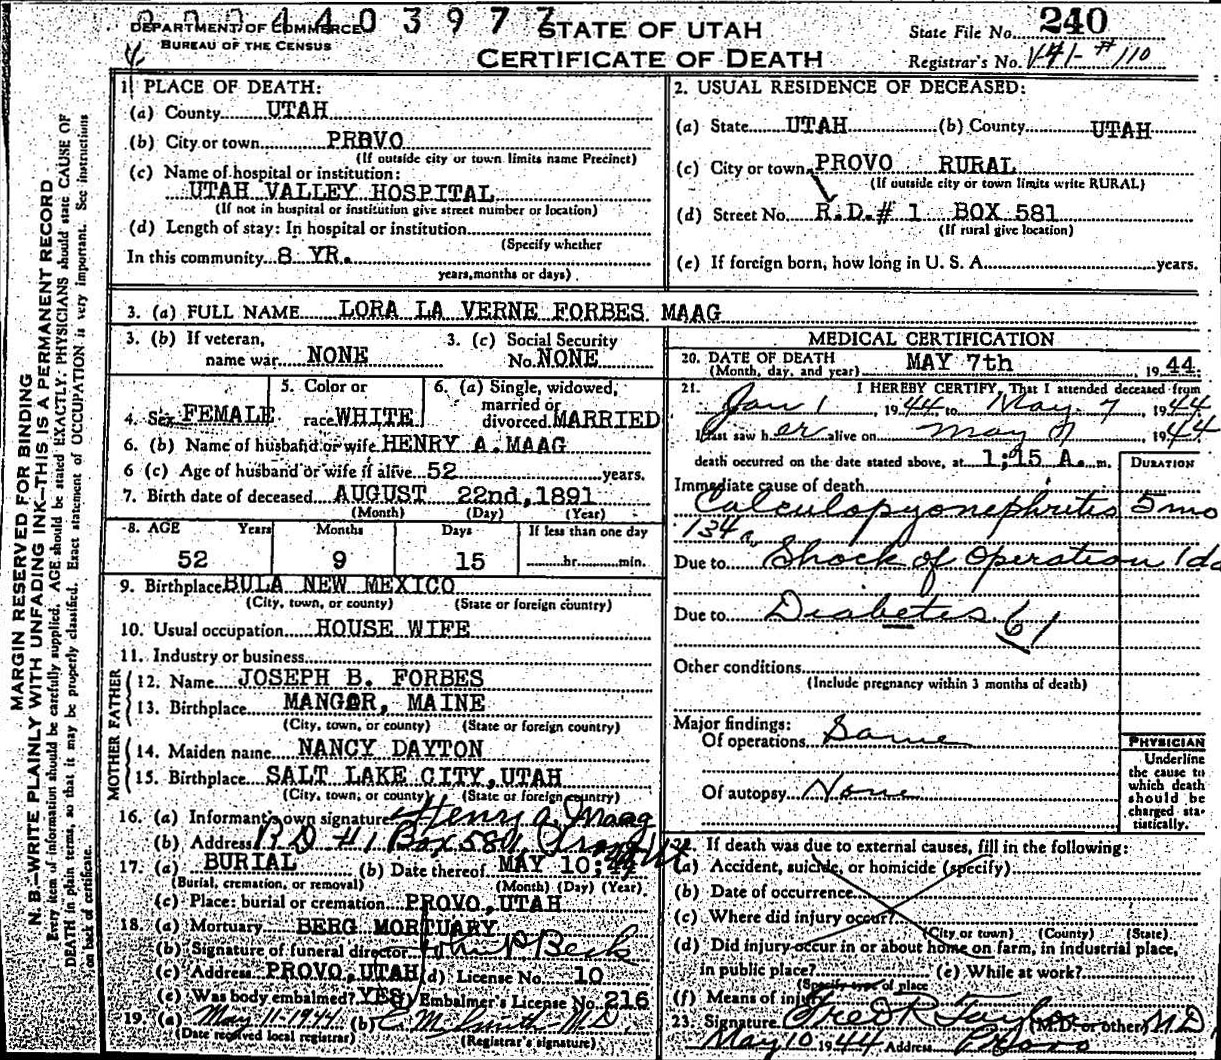 0 0 0 4 4 0 3 9 7 7
DEPARTMENT OF COMMERCE
BUREAU OF THE CENSUS
STATE OF UTAH
CERTIFICATE OF DEATH
State File No. 240
Registrar's No. V-41- #110
MARGIN RESERVED FOR BINDING
N. B.—WRITE PLAINLY WITH UNFADING INK—THIS IS A PERMANENT RECORD
Every item of information should be carefully supplied. AGE should be stated EXACTLY. PHYSICIANS should state CAUSE OF
DEATH in plain terms, so that it may be properly classified. Exact statement of OCCUPATION is very important. See instructions
on back of certificate.
1 PLACE OF DEATH:
(a) County UTAH
(b) City or town PROVO
(If outside city or town limits name Precinct)
(c) Name of hospital or institution:
UTAH VALLEY HOSPITAL
(If not in hospital or institution give street number or location)
(d) Length of stay: In hospital or institution
(Specify whether
In this community 8 YR.
years, months or days)
2. USUAL RESIDENCE OF DECEASED:
(a) State UTAH (b) County UTAH
(c) City or town PROVO RURAL
(If outside city or town limits write RURAL)
(d) Street No. R.D.# 1 BOX 581
(If rural give location)
(e) If foreign born, how long in U. S. A. years.
3. (a) FULL NAME LORA LA VERNE FORBES MAAG
3. (b) If veteran,
name war NONE
3. (c) Social Security
No. NONE
4. Sex FEMALE
5. Color or
race WHITE
6. (a) Single, widowed,
married or
divorced MARRIED
6. (b) Name of husband or wife HENRY A. MAAG
6 (c) Age of husband or wife if alive 52 years.
7. Birth date of deceased AUGUST 22nd, 1891
(Month) (Day) (Year)
8. AGE Years Months Days If less than one day
52 9 15 hr. min.
9. Birthplace BULA NEW MEXICO
(City, town, or county) (State or foreign country)
10. Usual occupation HOUSE WIFE
11. Industry or business
FATHER
12. Name JOSEPH B. FORBES
13. Birthplace MANGOR, MAINE
(City, town, or county) (State or foreign country)
MOTHER
14. Maiden name NANCY DAYTON
15. Birthplace SALT LAKE CITY, UTAH
(City, town, or county) (State or foreign country)
16. (a) Informant's own signature Henry A. Maag
(b) Address R D #1 Box 581, Provo Ut
17. (a) BURIAL (b) Date thereof MAY 10, 44
(Burial, cremation, or removal) (Month) (Day) (Year)
(c) Place: burial or cremation PROVO, UTAH
18. (a) Mortuary BERG MORTUARY
(b) Signature of funeral director John P Beck
(c) Address PROVO, UTAH (d) License No. 10
(e) Was body embalmed? YES Embalmer's License No. 216
19. (a) May 11-1944 (b) C. M. Smith M.D.
(Date received local registrar) (Registrar's signature)
MEDICAL CERTIFICATION
20. DATE OF DEATH
(Month, day, and year) MAY 7th, 1944.
21. I HEREBY CERTIFY, That I attended deceased from
Jan 1, 1944 to May 7, 1944.
I last saw her alive on May 7, 1944
death occurred on the date stated above, at 1:15 A. m.
DURATION
Immediate cause of death
Calculopyonephritis 5 mo
134a
Due to Shock of Operation 1 da
Due to Diabetes 61
Other conditions
(Include pregnancy within 3 months of death)
Major findings:
Of operations Same
Of autopsy None
PHYSICIAN
Underline
the cause to
which death
should be
charged sta-
tistically.
If death was due to external causes, fill in the following:
(a) Accident, suicide, or homicide (specify)
(b) Date of occurrence
(c) Where did injury occur?
(City or town) (County) (State)
(d) Did injury occur in or about home on farm, in industrial place,
in public place? (e) While at work?
(Specify type of place
(f) Means of injury
23. Signature Fred R Taylor (M.D. or other) M.D.
May 10 1944 Address Provo